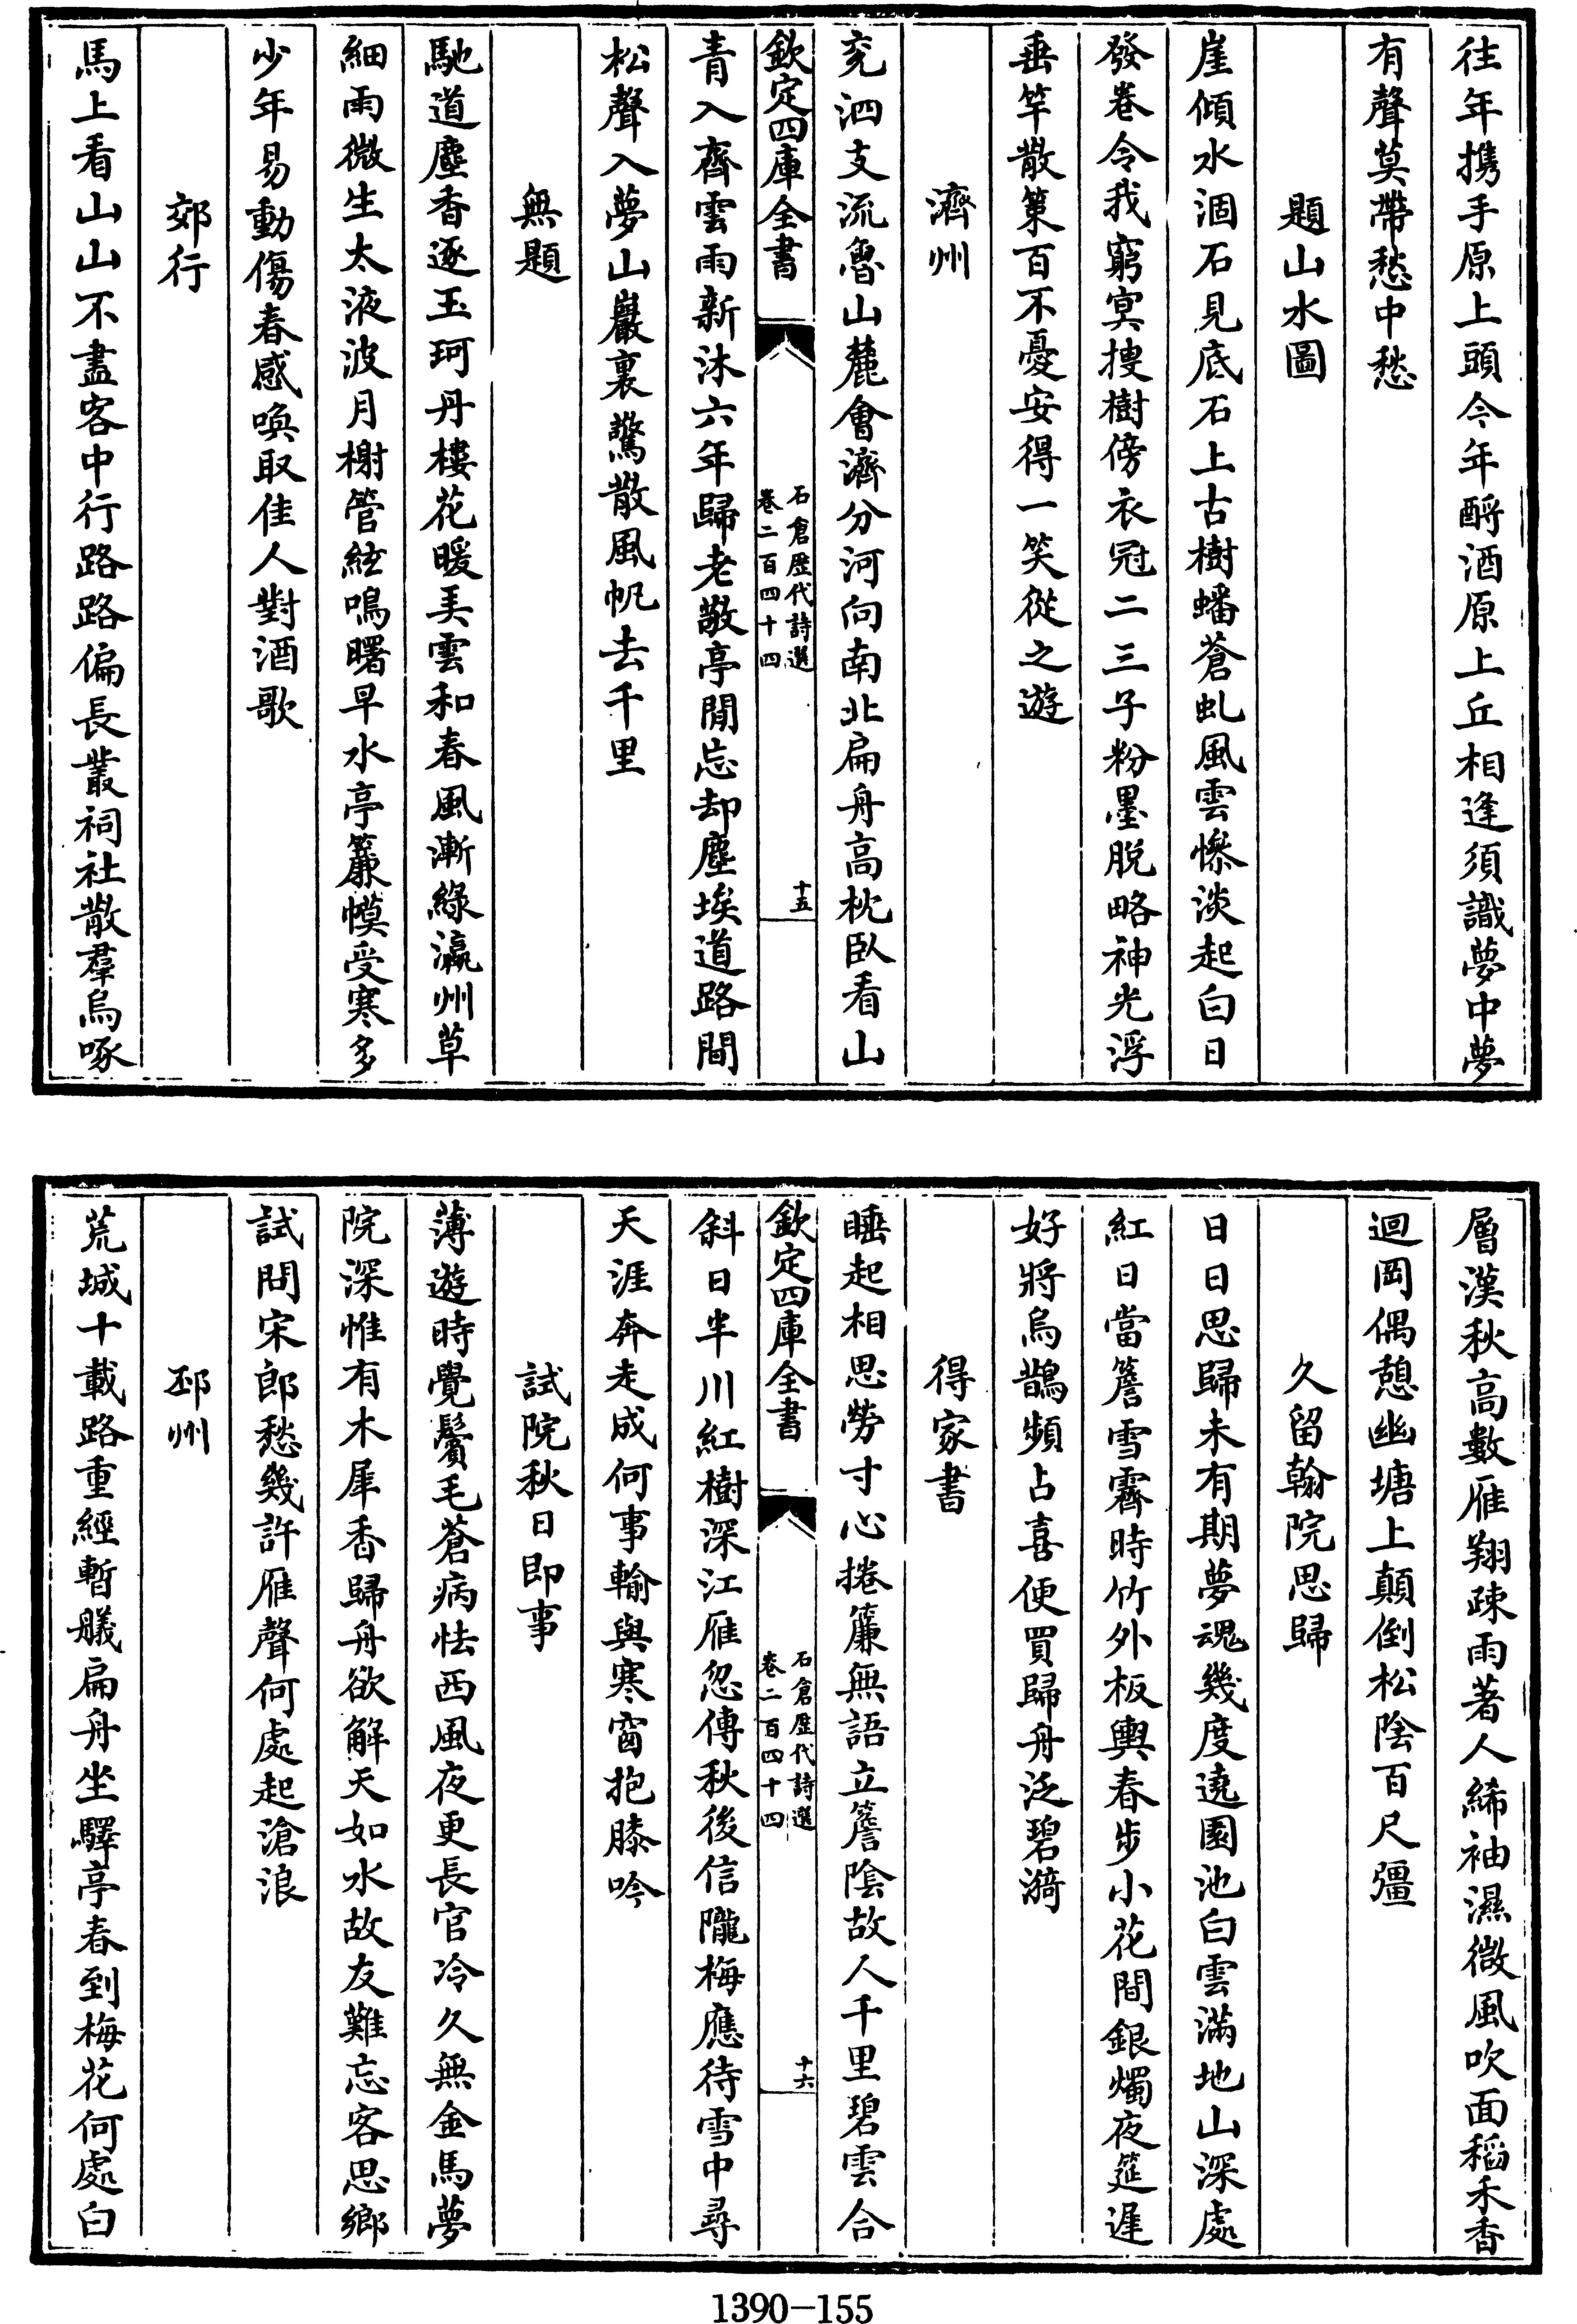 往年携手原上頭今年酹酒原上丘相逢須識夢中夢
有聲莫帶愁中愁
題山水圖
崖傾水涸石見底石上古樹蟠蒼虬風雲慘淡起白日
發卷令我窮冥搜樹傍衣冠二三子粉墨脫略神光浮
垂竿散策百不憂安得一笑從之遊
濟州
兖泗支流魯山麓會濟分河向南北扁舟高枕臥看山
欽定四庫全書
石倉歷代詩選
卷二百四十四
十五
青入齊雲雨新沐六年歸老敬亭閒忘却塵埃道路間
松聲入夢山巖裏驚散風帆去千里
無題
馳道塵香逐玉珂丹樓花暖美雲和春風漸綠瀛州草
細雨微生太液波月榭管絃鳴曙早水亭簾幙受寒多
少年易動傷春感喚取佳人對酒歌
郊行
馬上看山山不盡客中行路路偏長叢祠社散羣烏啄
層漢秋高數雁翔疎雨著人絺袖濕微風吹面稻禾香
迴岡偶憩幽塘上顛倒松陰百尺彊
久留翰院思歸
日日思歸未有期夢魂幾度遶園池白雲滿地山深處
紅日當簷雪霽時竹外板輿春步小花間銀燭夜筵遲
好將烏鵲頻占喜便買歸舟泛碧漪
得家書
睡起相思勞寸心捲簾無語立簷陰故人千里碧雲合
欽定四庫全書
石倉歷代詩選
卷二百四十四
十六
斜日半川紅樹深江雁忽傳秋後信隴梅應待雪中尋
天涯奔走成何事輸與寒窗抱膝吟
試院秋日即事
薄遊時覺鬢毛蒼病怯西風夜更長官冷久無金馬夢
院深惟有木犀香歸舟欲解天如水故友難忘客思鄉
試問宋郎愁幾許雁聲何處起滄浪
邳州
荒城十載路重經暫艤扁舟坐驛亭春到梅花何處白
1390—155